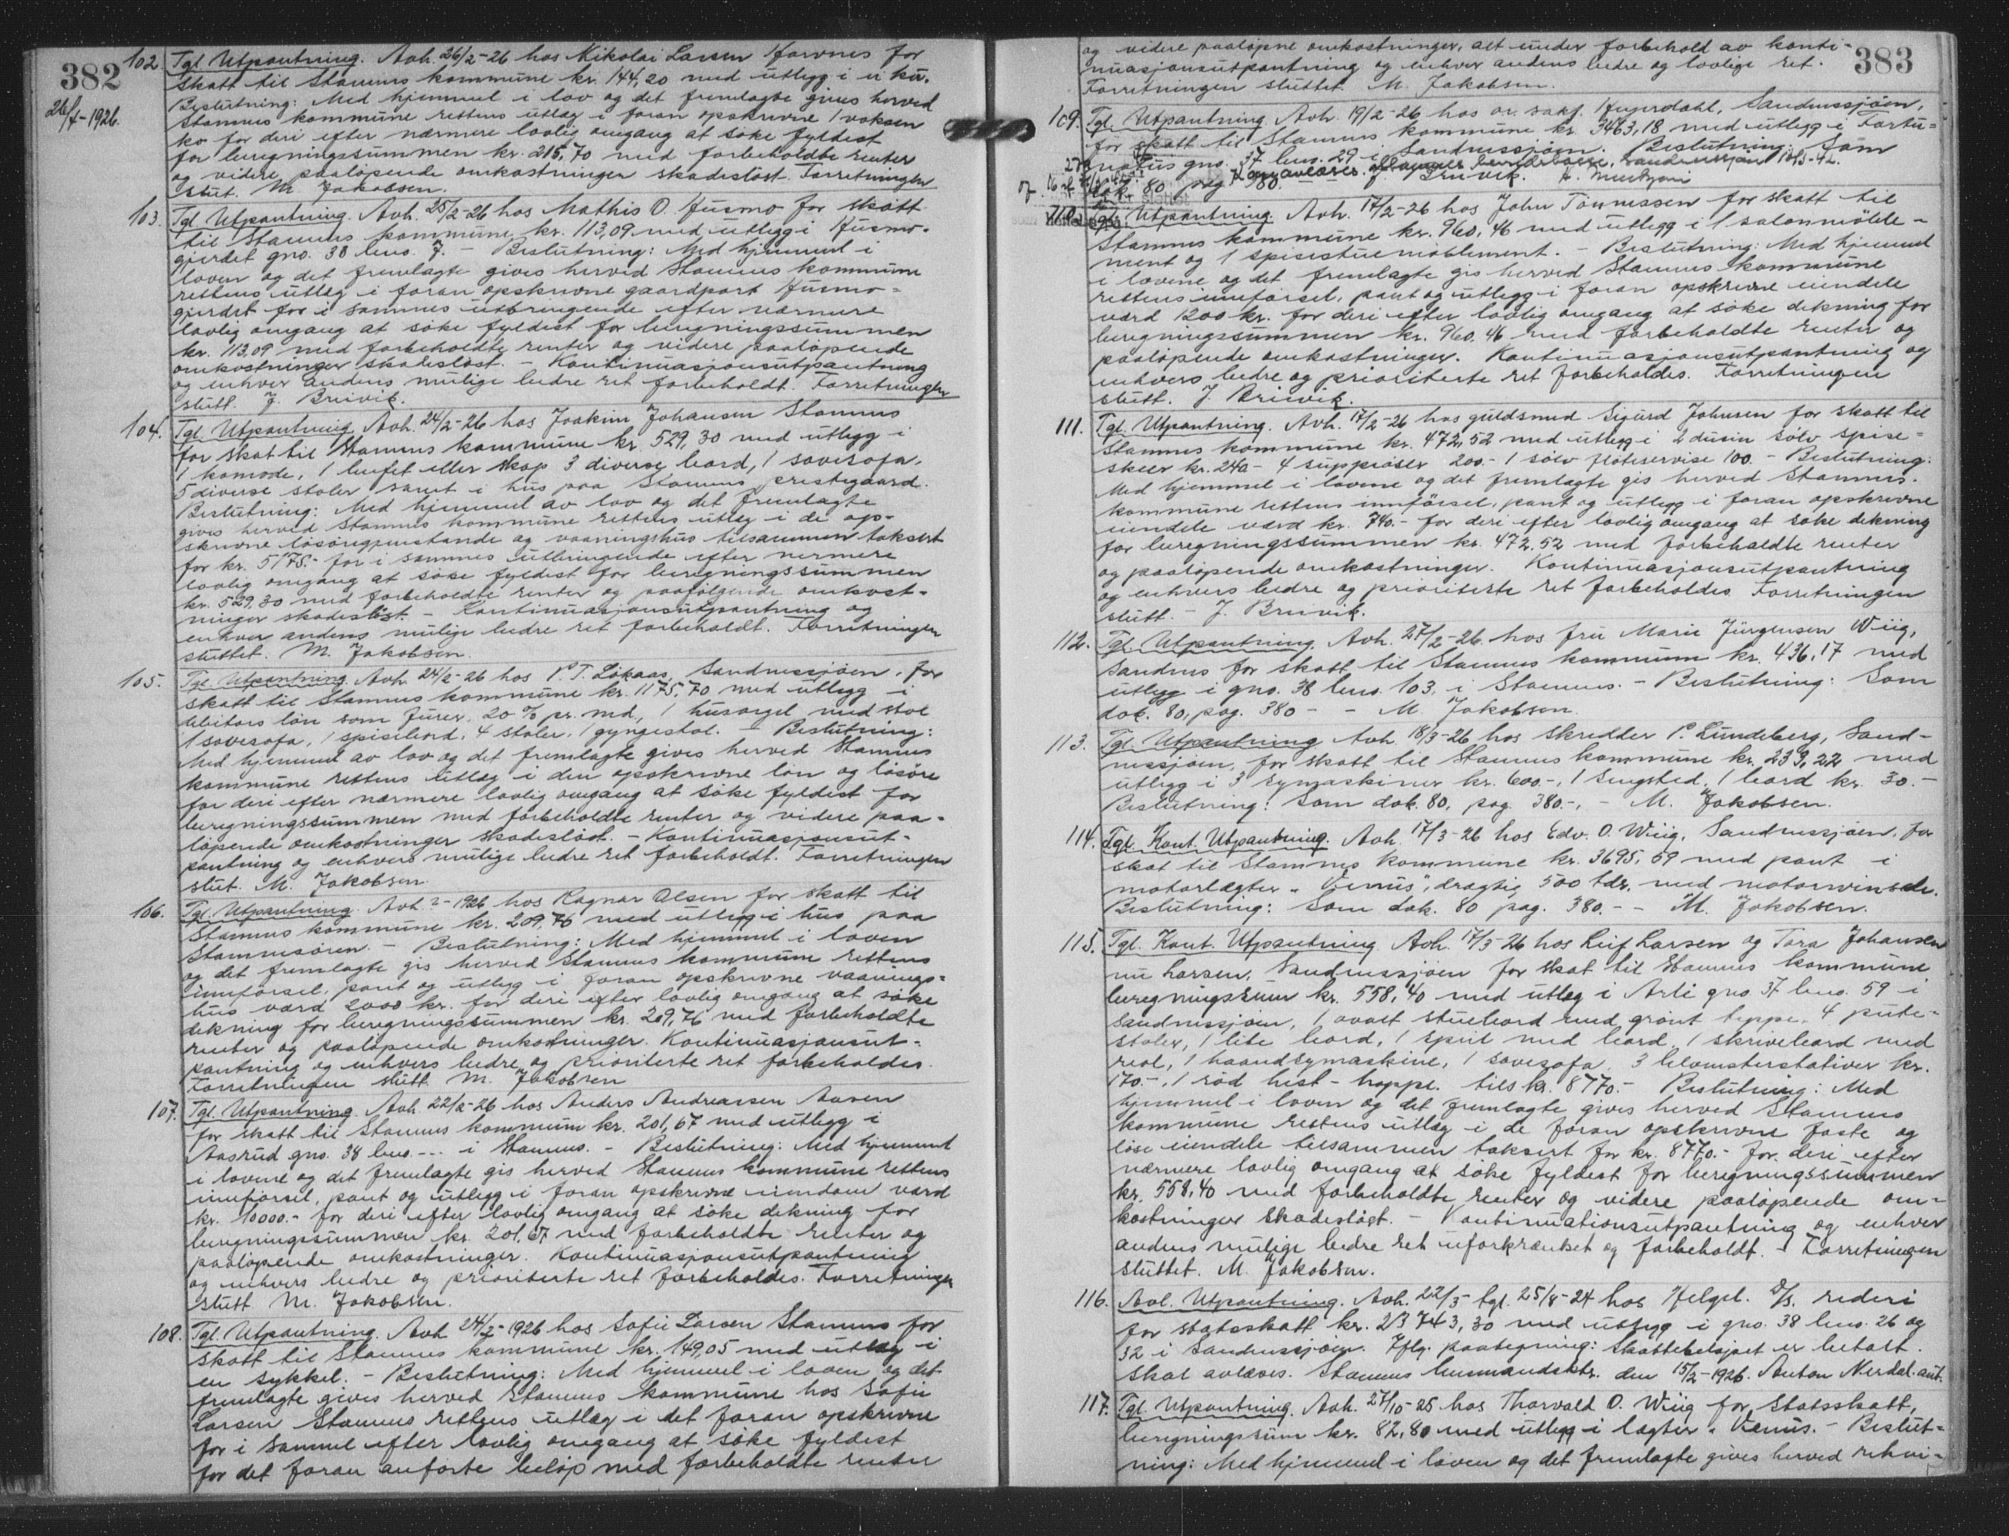 382
26/4-1926.
102 Tgl. Utpantning. Avh. 26/2-26 hos Nikolai Larsen Harvnes for
skatt til Stamnes kommune kr. 144,20 med utlegg i u ku.
Beslutning: Med hjemmel i lov og det fremlagte gives herved
Stamnes kommune rettens utlæg i foran opskrevne 1 voksen
ko for deri efter nærmere lovlig omgang at søke fyldest
for beregningssummen kr. 215,70 med forbeholdte renter
og videre paaløpende omkostninger skadesløst. Forretningen
slut. M. Jakobsen.
103. Tgl. Utpantning. Avh. 25/2-26 hos Mathis O. Husmo for skatt
til Stamnes kommune kr. 113,09 med utlegg i Husmo-
gjerdet gno. 38 bno. 7. - Beslutning: Med hjemmel i
loven og det fremlagte gives herved Stamnes kommune
rettens utlæg i foran opskrevne gaardpart Husmo-
gjerdet for i sammes utbringende efter nærmere
lovlig omgang at søke fyldest for beregningssummen
kr. 113,09 med forbeholdte renter og videre paaløpende
omkostninger skadesløst. - Kontinuasjonsutpantning
og enhver andens mulige bedre ret forbeholdt. Forretningen
slutt. J. Brevik.
104. Tgl. Utpantning. Avh. 24/2-26 hos Joakim Johansen Stamnes
for skat til Stamnes kommune kr. 529,30 med utlegg i
1 komode, 1 bufet eller skap 3 diverse bord, 1 sovesofa,
5 diverse stoler samt i hus paa Stamnes prestegaard.
Beslutning: Med hjemmel av lov og det fremlagte
gives herved Stamnes kommune rettens utlæg i de op-
skrevne løsøregjenstande og vaaningshus tilsammen taksert
for kr. 5175.- for i sammes utbringende efter nærmere
lovlig omgang at søke fyldest for beregningssummen
kr. 529,30 med forbeholdte renter og paafølgende omkost-
ninger skadesløst. - Kontinuasjonsutpantning og
enhver andens mulige bedre ret forbeholdt. Forretningen
sluttet. M. Jakobsen.
105. Tgl. Utpantning. Avh. 24/2-26 hos P. T. Løkaas, Sandnessjøen, for
skatt til Stamnes kommune kr. 1175,70 med utlegg i
debitors løn som fører 20 % pr. md, 1 husorgel med stol
1 sovesofa, 1 spisebord, 4 stoler, 1 gyngestol. - Beslutning:
Med hjemmel av lov og det fremlagte gives herved Stamnes
kommune rettens utlæg i den opskrevne løn og løsøre
for deri efter nærmere lovlig omgang at søke fyldest for
beregningssummen med forbeholdte renter og videre paa-
løpende omkostninger skadesløst. - Kontinuasjonsut-
pantning og enhvers mulige bedre ret forbeholdt. Forretningen
slut. M. Jakobsen.
106. Tgl. Utpantning. Avh. 2-1926 hos Ragnar Olsen for skatt til
Stamnes kommune kr. 209,76 med utlegg i hus paa
Stamnesøren. - Beslutning: Med hjemmel i loven
og det fremlagte gis herved Stamnes kommune rettens
innførsel, pant og utlegg i foran opskrevne vaanings-
hus værd 2000 kr. for deri efter lovlig omgang at søke
dekning for beregningssummen kr. 209,76 med forbeholdte
renter og paaløpende omkostninger. Kontinuasjonsut-
pantning og enhvers bedre og prioriterte ret forbeholdes.
Forretningen slutt. M. Jakobsen
107. Tgl. Utpantning. Avh. 22/2-26 hos Anders Andreassen Aasen
for skatt til Stamnes kommune kr. 201,67 med utlegg i
Aasrud gno. 38 bno. --- i Stamnes. - Beslutning: Med hjemmel
i lovene og det fremlagte gis herved Stamnes kommune rettens
innførsel, pant og utlegg i foran opskrevne eiendom værd
kr. 10000.- for deri efter lovlig omgang at søke dekning for
beregningssummen kr. 201,67 med forbeholdte renter og
paaløpende omkostninger. Kontinuasjonsutpantning
og enhvers bedre og prioriterte ret forbeholdes. Forretningen
slutt. M. Jakobsen.
108. Tgl. Utpantning. Avh. 24/2-1926 hos Sofie Larsen Stamnes for
skatt til Stamnes kommune kr. 149,05 med utlæg i
en sykkel. - Beslutning: Med hjemmel i loven og det
fremlagte gives herved Stamnes kommune hos Sofie
Larsen Stamnes rettens utlæg i det foran opskrevne
for i sammel efter lovlig omgang at søke fyldest
for det foran anførte beløp med forbeholdte renter
383
og videre paaløpne omkostninger, alt under forbehold av konti-
nuasjonsutpantning og enhver andens bedre og lovlige ret.
Forretningen sluttet. M. Jakobsen.
109. Tgl. Utpantning. Avh. 19/2-26 hos or. sakf. Sandnessjøen,
for skatt til Stamnes kommune kr. 3463,18 med utlegg i Fortu-
natus gno. 37 bno. 29 i Sandnessjøen. Beslutning: Som
dok. 80 pag. 380. J. Brevik.
110. Tgl. Utpantning. Avh. 17/2-26 hos John Tønnessen for skatt til
Stamnes kommune kr. 960,46 med utlegg i 1 salonmøble-
ment og 1 spisestuemøblement. - Beslutning: Med hjemmel
i lovene og det fremlagte gis herved Stamnes kommune
rettens innførsel, pant og utlegg i foran opskrevne eiendele
værd 1200 kr. for deri efter lovlig omgang at søke dekning for
beregningssummen kr. 960.46 med forbeholdte renter og
paaløpende omkostninger. Kontinuasjonsutpantning og
enhvers bedre og prioriterte ret forbeholdes. Forretningen
slutt. J. Brevik.
111. Tgl. Utpantning. Avh. 17/2-26 hos guldsmed Sigurd Johnsen for skatt til
Stamnes kommune kr. 472,52 med utlegg i 2 dusin sølv spise-
skeer kr. 240- 4 suppøser 200.- 1 sølv fløteservise 100. - Beslutning:
Med hjemmel i lovene og det fremlagte gis herved Stamnes
kommune rettens innførsel, pant og utlegg i foran opskrevne
eiendele værd kr. 740.- for deri efter lovlig omgang at søke dekning
for beregningssummen kr. 472.52 med forbeholdte renter
og paaløpende omkostninger. Kontinuasjonsutpantning
og enhvers bedre og prioriterte ret forbeholdes. Forretningen
slutt. - J. Brevik.
112. Tgl. Utpantning. Avh. 27/2-26 hos fru Marie Jürgensen Wiig,
Sandnes for skatt til Stamnes kommune kr. 436,17 med
utlegg i gno. 38 bno. 103, i Stamnes. - Beslutning: Som
dok. 80, pag. 380 - - M. Jakobsen.
113. Tgl. Utpantning. Avh. 18/3-26 hos skredder P. Lundeberg, Sand-
nessjøen, for skatt til Stamnes kommune kr. 239,22 med
utlegg i 3 symaskiner kr. 600.-, 1 sengsted, 1 bord kr. 30.-
Beslutning: Som dok. 80, pag. 380.-, - M. Jakobsen.
114. Tgl. Kont. Utpantning. Avh. 17/3-26 hos Edv. O. Wiig, Sandnessjøen, for
skat til Stamnes kommune kr. 3695,59 med pant i
motorlægter "Venus", drægtig 500 tdr. med motorwinsch.
Beslutning: Som dok. 80 pag. 380. - - M. Jakobsen.
115. Tgl. Kont. Utpantning. Avh. 17/3-26 hos Leif Larsen og Tora Johansen
nu Larsen, Sandnessjøen for skat til Stamnes kommune
beregningssum kr. 558,40 med utlæg i Arli gno 37 bno. 59 i
Sandnessjøen, 1 ovalt stuebord med grønt teppe, 4 pute-
stoler, 1 lite bord, 1 speil med bord, 1 skrivebord med
reol, 1 haandsymaskine, 1 sovesofa, 3 blomsterstativer kr.
170.-, 1 rød hest - hoppe. tils. kr. 8770.- Beslutning: Med
hjemmel i loven og det fremlagte gives herved Stamnes
kommune rettens utlæg i de foran opskrevne faste og
løse eiendele tilsammen taksert for kr. 8770.- for deri efter
nærmere lovlig omgang at søke fyldest for beregningssummen
kr. 558,40 med forbeholdte renter og videre paaløpende om-
kostninger skadesløst. - Kontinuationsutpantning og enhver
andens mulige bedre ret uforkrænket og forbeholdt. - Forretningen
sluttet. M. Jakobsen.
116. Avl. Utpantning. Avh. 22/5- tgl. 25/8-24 hos Helgel. D/S. rederi
for statsskatt kr. 23743,30 med utlegg i gno. 38 bno. 26 og
32 i Sandnessjøen. Iflg. paategning: Skattebeløpet er betalt.
Skal avlæses. Stamnes lensmandsktr. den 15/2-1926. Anton Nerdal. aut.
117. Tgl. Utpantning. Avh. 27/10-25 hos Thorvald O. Wiig for Statsskatt,
beregningssum kr. 82,80 med utlegg i lægter "Venus. - Beslut-
ning: Med hjemmel i loven og det fremlagte gives herved rekvi-